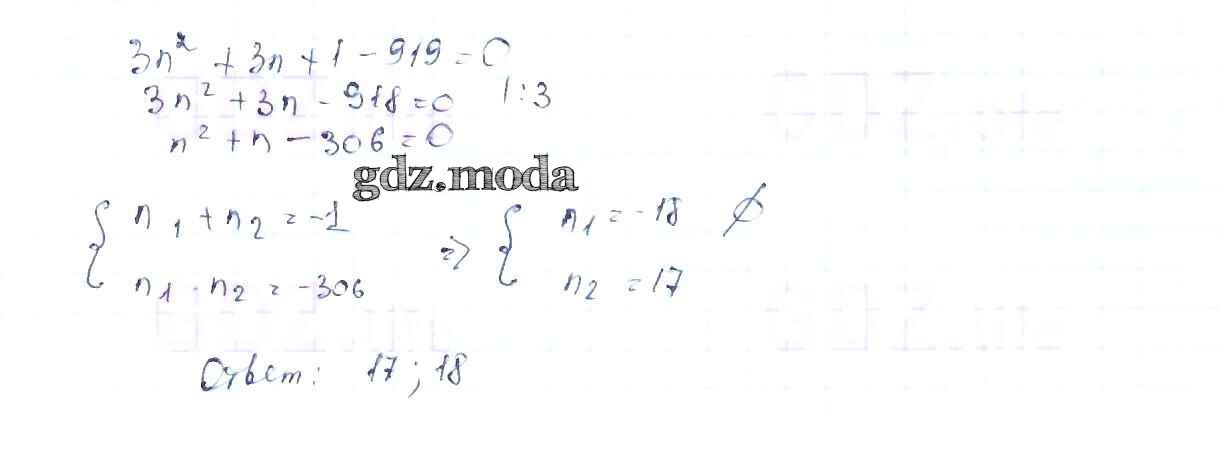 3n² + 3n + 1 - 919 = 0
3n² + 3n - 918 = 0 | : 3
n² + n - 306 = 0
gdz.moda
{ n₁ + n₂ = -1 => { n₁ = -18 ∅
n₁ · n₂ = -306 n₂ = 17
Ответ: 17; 18